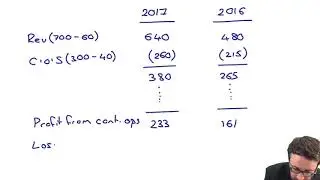 2017 2016
Rev (700-60) 640 480
C.o.S (300-40) (260) (215)
380 265
Profit from cont. ops 233 161
Los.